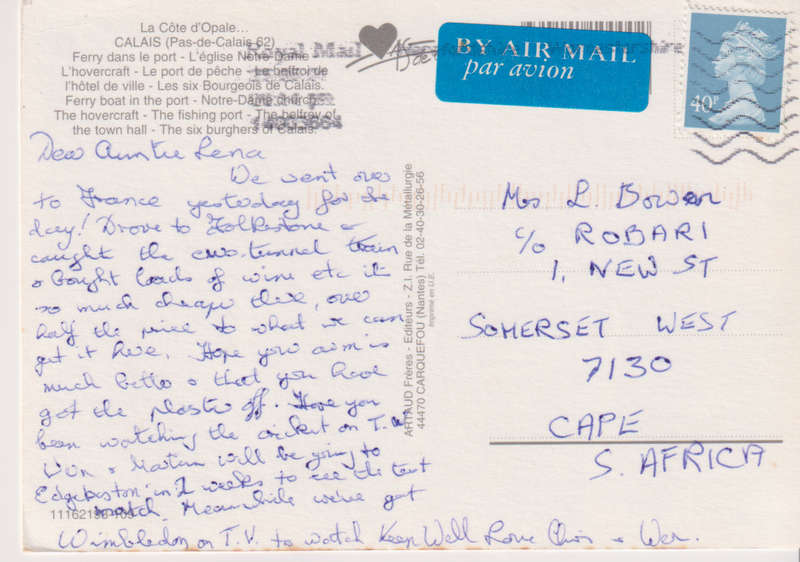 La Côte d'Opale...
CALAIS (Pas-de-Calais 62)
Ferry dans le port - L'église Notre-Dame
L'hovercraft - Le port de pêche - Le beffroi de
l'hôtel de ville - Les six Bourgeois de Calais.
Ferry boat in the port - Notre-Dame church...
The hovercraft - The fishing port - The belfrey of
the town hall - The six burghers of Calais.
Royal Mail
BY AIR MAIL
par avion
40P
Dear Auntie Lena
We went over
to France yesterday for the
day! Drove to Folkstone &
caught the eurotunnel train
& bought loads of wine etc it
so much cheaper there, over
half the price to what we can
get it here. Hope your arm is
much better & that you have
got the plaster off. Have you
been watching the cricket on T.V.
& Martin will be going to
Edgebaston in 2 weeks to see the test
match. Meanwhile we've got
Wimbledon on T.V. to watch Keep Well Love Chris & Wen.
11162198 109
ARTAUD Frères - Editeurs - Z.I. Rue de la Métallurgie
44470 CARQUEFOU (Nantes) Tél. 02-40-30-26-56
Imprimé en U.E.
Mrs L. Bowen
c/o ROBARI
1, NEW ST
SOMERSET WEST
7130
CAPE
S. AFRICA